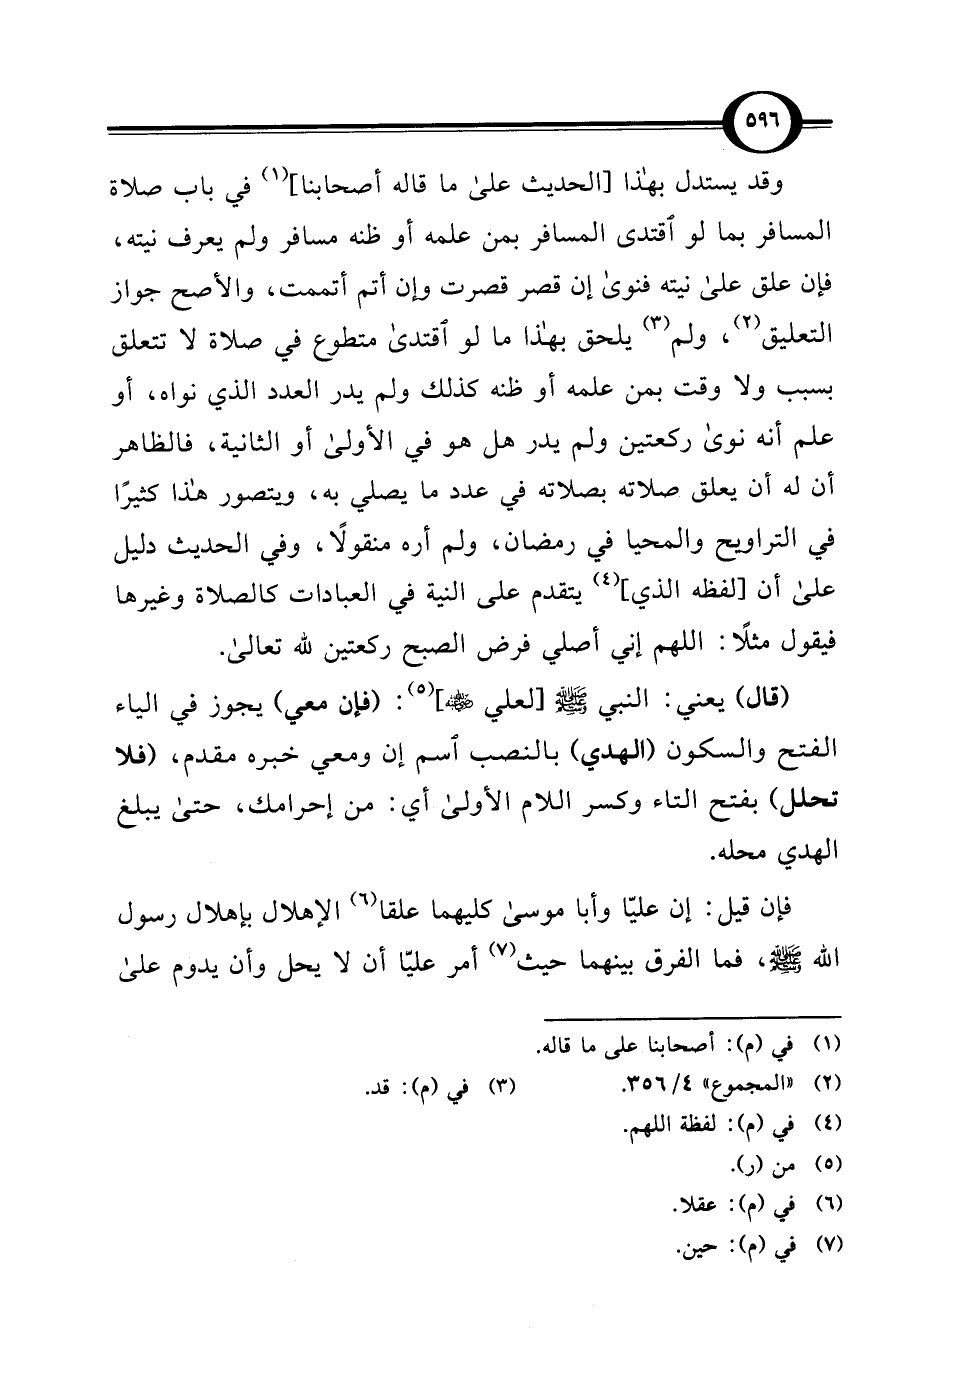 ٥٩٦
وقد يستدل بهٰذا [الحديث علىٰ ما قاله أصحابنا](١) في باب صلاة
المسافر بما لو ٱقتدى المسافر بمن علمه أو ظنه مسافر ولم يعرف نيته،
فإن علق علىٰ نيته فنوىٰ إن قصر قصرت وإن أتم أتممت، والأصح جواز
التعليق(٢)، ولم(٣) يلحق بهٰذا ما لو ٱقتدىٰ متطوع في صلاة لا تتعلق
بسبب ولا وقت بمن علمه أو ظنه كذلك ولم يدر العدد الذي نواه، أو
علم أنه نوىٰ ركعتين ولم يدر هل هو في الأولىٰ أو الثانية، فالظاهر
أن له أن يعلق صلاته بصلاته في عدد ما يصلي به، ويتصور هٰذا كثيرًا
في التراويح والمحيا في رمضان، ولم أره منقولًا، وفي الحديث دليل
علىٰ أن [لفظه الذي](٤) يتقدم على النية في العبادات كالصلاة وغيرها
فيقول مثلًا: اللهم إني أصلي فرض الصبح ركعتين لله تعالىٰ.
(قال) يعني: النبي ﷺ [لعلي رضي الله عنه](٥): (فإن معي) يجوز في الياء
الفتح والسكون (الهدي) بالنصب ٱسم إن ومعي خبره مقدم، (فلا
تحلل) بفتح التاء وكسر اللام الأولىٰ أي: من إحرامك، حتىٰ يبلغ
الهدي محله.
فإن قيل: إن عليّا وأبا موسىٰ كليهما علقا(٦) الإهلال بإهلال رسول
الله ﷺ، فما الفرق بينهما حيث(٧) أمر عليّا أن لا يحل وأن يدوم علىٰ
(١) في (م): أصحابنا على ما قاله.
(٢) «المجموع» ٤/ ٣٥٦. (٣) في (م): قد.
(٤) في (م): لفظة اللهم.
(٥) من (ر).
(٦) في (م): عقلا.
(٧) في (م): حين.